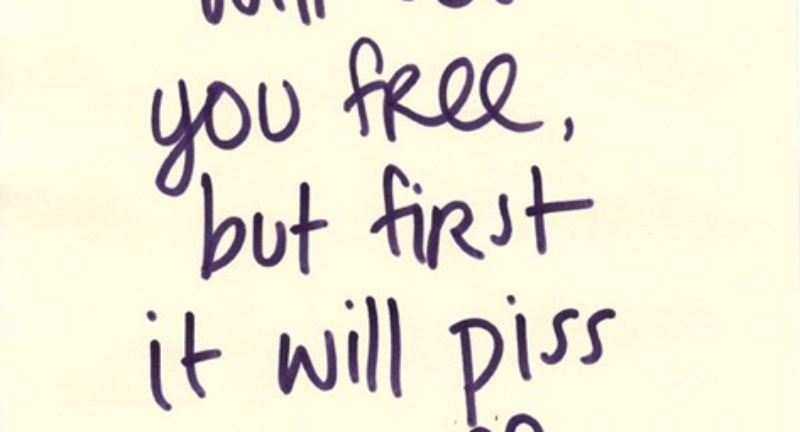 will
you free,
but first
it will piss